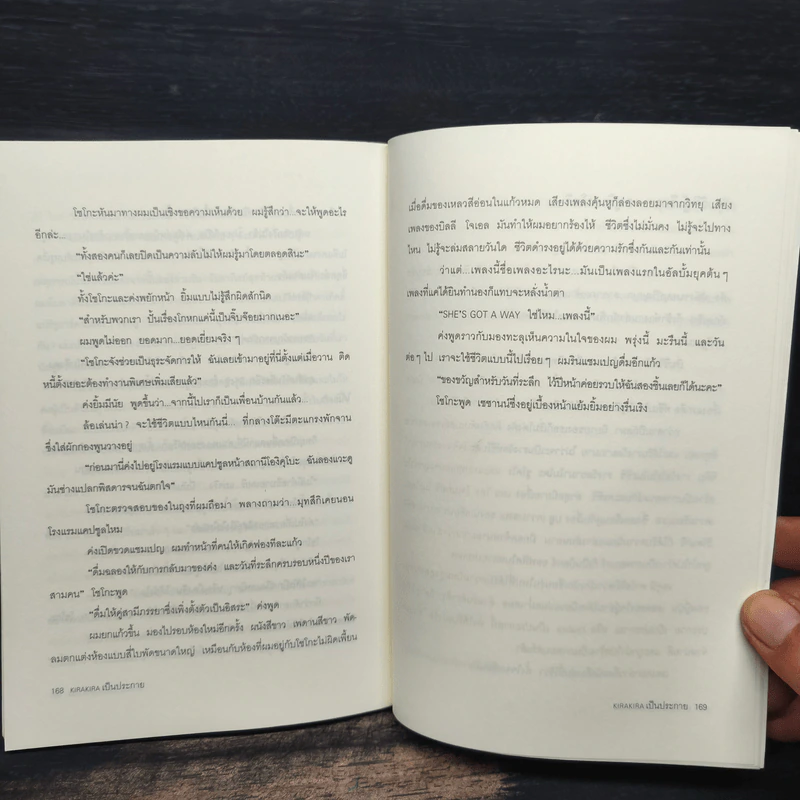 โชโกะหันมาทางผมเป็นเชิงขอความเห็นด้วย ผมรู้สึกว่า...จะให้พูดอะไร
อีกล่ะ...
“ทั้งสองคนก็เลยปิดเป็นความลับไม่ให้ผมรู้มาโดยตลอดสินะ”
“ใช่แล้วค่ะ”
ทั้งโชโกะและค่งพยักหน้า ยิ้มแบบไม่รู้สึกผิดสักนิด
“สำหรับพวกเรา ปั้นเรื่องโกหกแค่นี้เป็นจิ๊บจ๊อยมากเนอะ”
ผมพูดไม่ออก ยอดมาก...ยอดเยี่ยมจริง ๆ
“โชโกะจังช่วยเป็นธุระจัดการให้ ฉันเลยเข้ามาอยู่ที่นี่ตั้งแต่เมื่อวาน ติด
หนี้ตั้งเยอะต้องทำงานพิเศษเพิ่มเสียแล้ว”
ค่งยิ้มมีนัย พูดขึ้นว่า...จากนี้ไปเราก็เป็นเพื่อนบ้านกันแล้ว
ล้อเล่นน่า ? จะใช้ชีวิตแบบไหนกันนี่... ที่กลางโต๊ะมีตะแกรงพักจาน
ซึ่งใส่ผักกองพูนวางอยู่
“ก่อนมานี่ค่งไปอยู่โรงแรมแบบแคปซูลหน้าสถานีโองิคุโบะ ฉันลองแวะดู
มันช่างแปลกพิสดารจนฉันตกใจ”
โชโกะตรวจสอบของในถุงที่ผมถือมา พลางถามว่า...มุทสึกิเคยนอน
โรงแรมแคปซูลไหม
ค่งเปิดขวดแชมเปญ ผมทำหน้าที่คนให้เกิดฟองทีละแก้ว
“ดื่มฉลองให้กับการกลับมาของค่ง และวันที่ระลึกครบรอบหนึ่งปีของเรา
สามคน” โชโกะพูด
“ดื่มให้คู่สามีภรรยาซึ่งเพิ่งตั้งตัวเป็นอิสระ” ค่งพูด
ผมยกแก้วขึ้น มองไปรอบห้องใหม่อีกครั้ง ผนังสีขาว เพดานสีขาว พัด-
ลมตกแต่งห้องแบบสี่ใบพัดขนาดใหญ่ เหมือนกับห้องที่ผมอยู่กับโชโกะไม่ผิดเพี้ยน
168 KIRAKIRA เป็นประกาย
เมื่อดื่มของเหลวสีอ่อนในแก้วหมด เสียงเพลงคุ้นหูก็ล่องลอยมาจากวิทยุ เสียง
เพลงของบิลลี โจเอล มันทำให้ผมอยากร้องไห้ ชีวิตซึ่งไม่มั่นคง ไม่รู้จะไปทาง
ไหน ไม่รู้จะล่มสลายวันใด ชีวิตดำรงอยู่ได้ด้วยความรักซึ่งกันและกันเท่านั้น
ว่าแต่...เพลงนี้ชื่อเพลงอะไรนะ...มันเป็นเพลงแรกในอัลบั้มยุคต้น ๆ
เพลงที่แค่ได้ยินทำนองก็แทบจะหลั่งน้ำตา
“SHE'S GOT A WAY ใช่ไหม...เพลงนี้”
ค่งพูดราวกับมองทะลุเห็นความในใจของผม พรุ่งนี้ มะรืนนี้ และวัน
ต่อๆ ไป เราจะใช้ชีวิตแบบนี้ไปเรื่อยๆ ผมรินแชมเปญดื่มอีกแก้ว
“ของขวัญสำหรับวันที่ระลึก ไว้ปีหน้าค่อยรวบให้ฉันสองชิ้นเลยก็ได้นะคะ”
โชโกะพูด เซซานน์ซึ่งอยู่เบื้องหน้าแย้มยิ้มอย่างรื่นเริง
KIRAKIRA เป็นประกาย 169